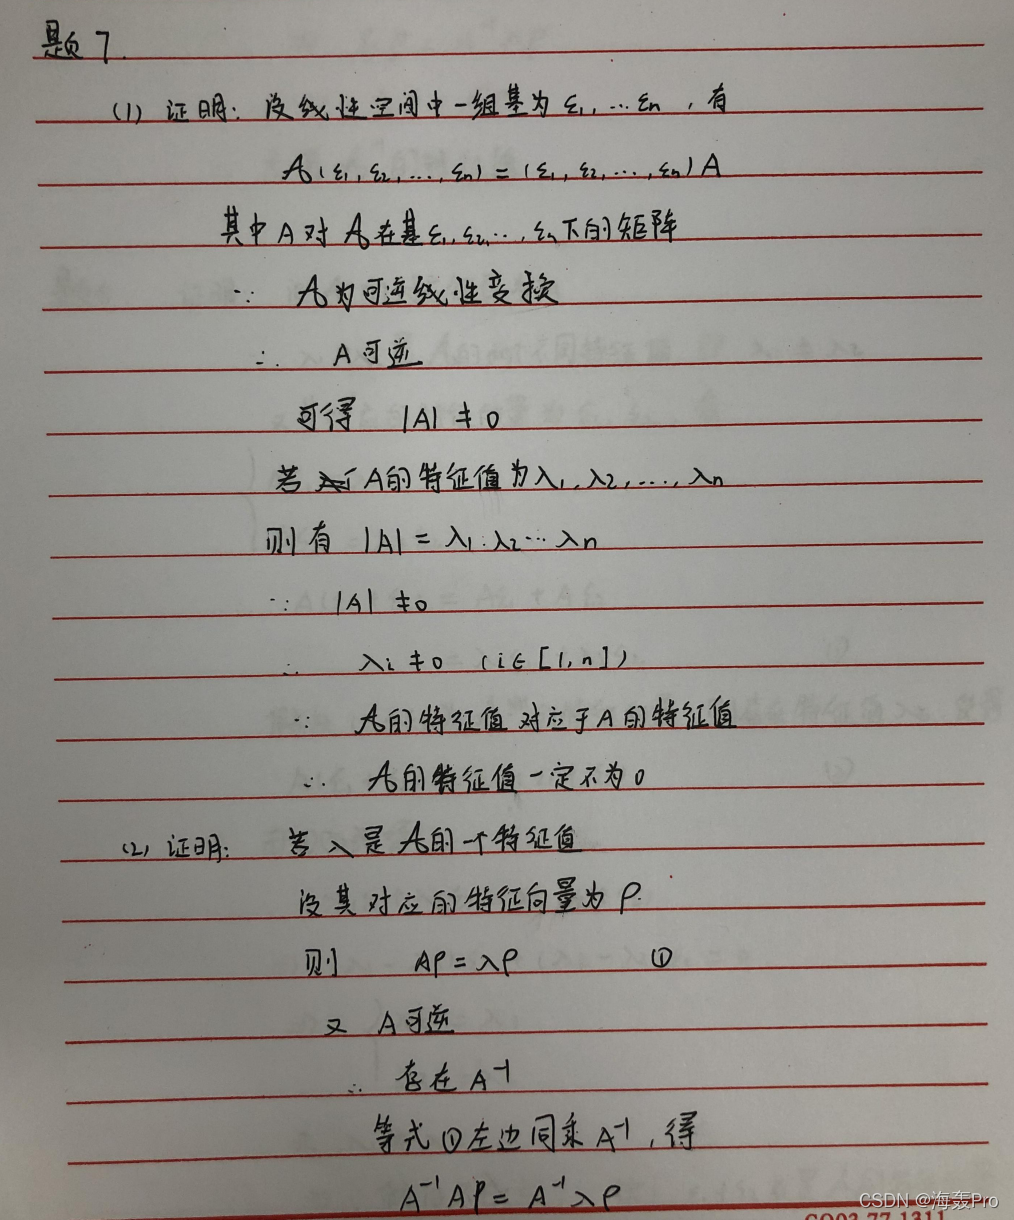 题7.
(1) 证明: 设线性空间中一组基为 ε₁, … εn , 有
𝒜(ε₁, ε₂, …, εn) = (ε₁, ε₂, …, εn) A
其中 A 对 𝒜 在基 ε₁, ε₂, …, εn 下的矩阵
∵ 𝒜 为可逆线性变换
∴ A 可逆
可得 |A| ≠ 0
若 A 的特征值为 λ₁, λ₂, …, λn
则有 |A| = λ₁·λ₂…λn
∵ |A| ≠ 0
∴ λi ≠ 0 (i∈[1,n])
∵ 𝒜的特征值对应于A的特征值
∴ 𝒜的特征值一定不为0
(2) 证明: 若 λ 是 𝒜的一个特征值
设其对应的特征向量为 ρ.
则 Aρ = λρ ①
又 A 可逆
∴ 存在 A⁻¹
等式①左边同乘 A⁻¹, 得
A⁻¹Aρ = A⁻¹λρ
CSDN @海轰Pro